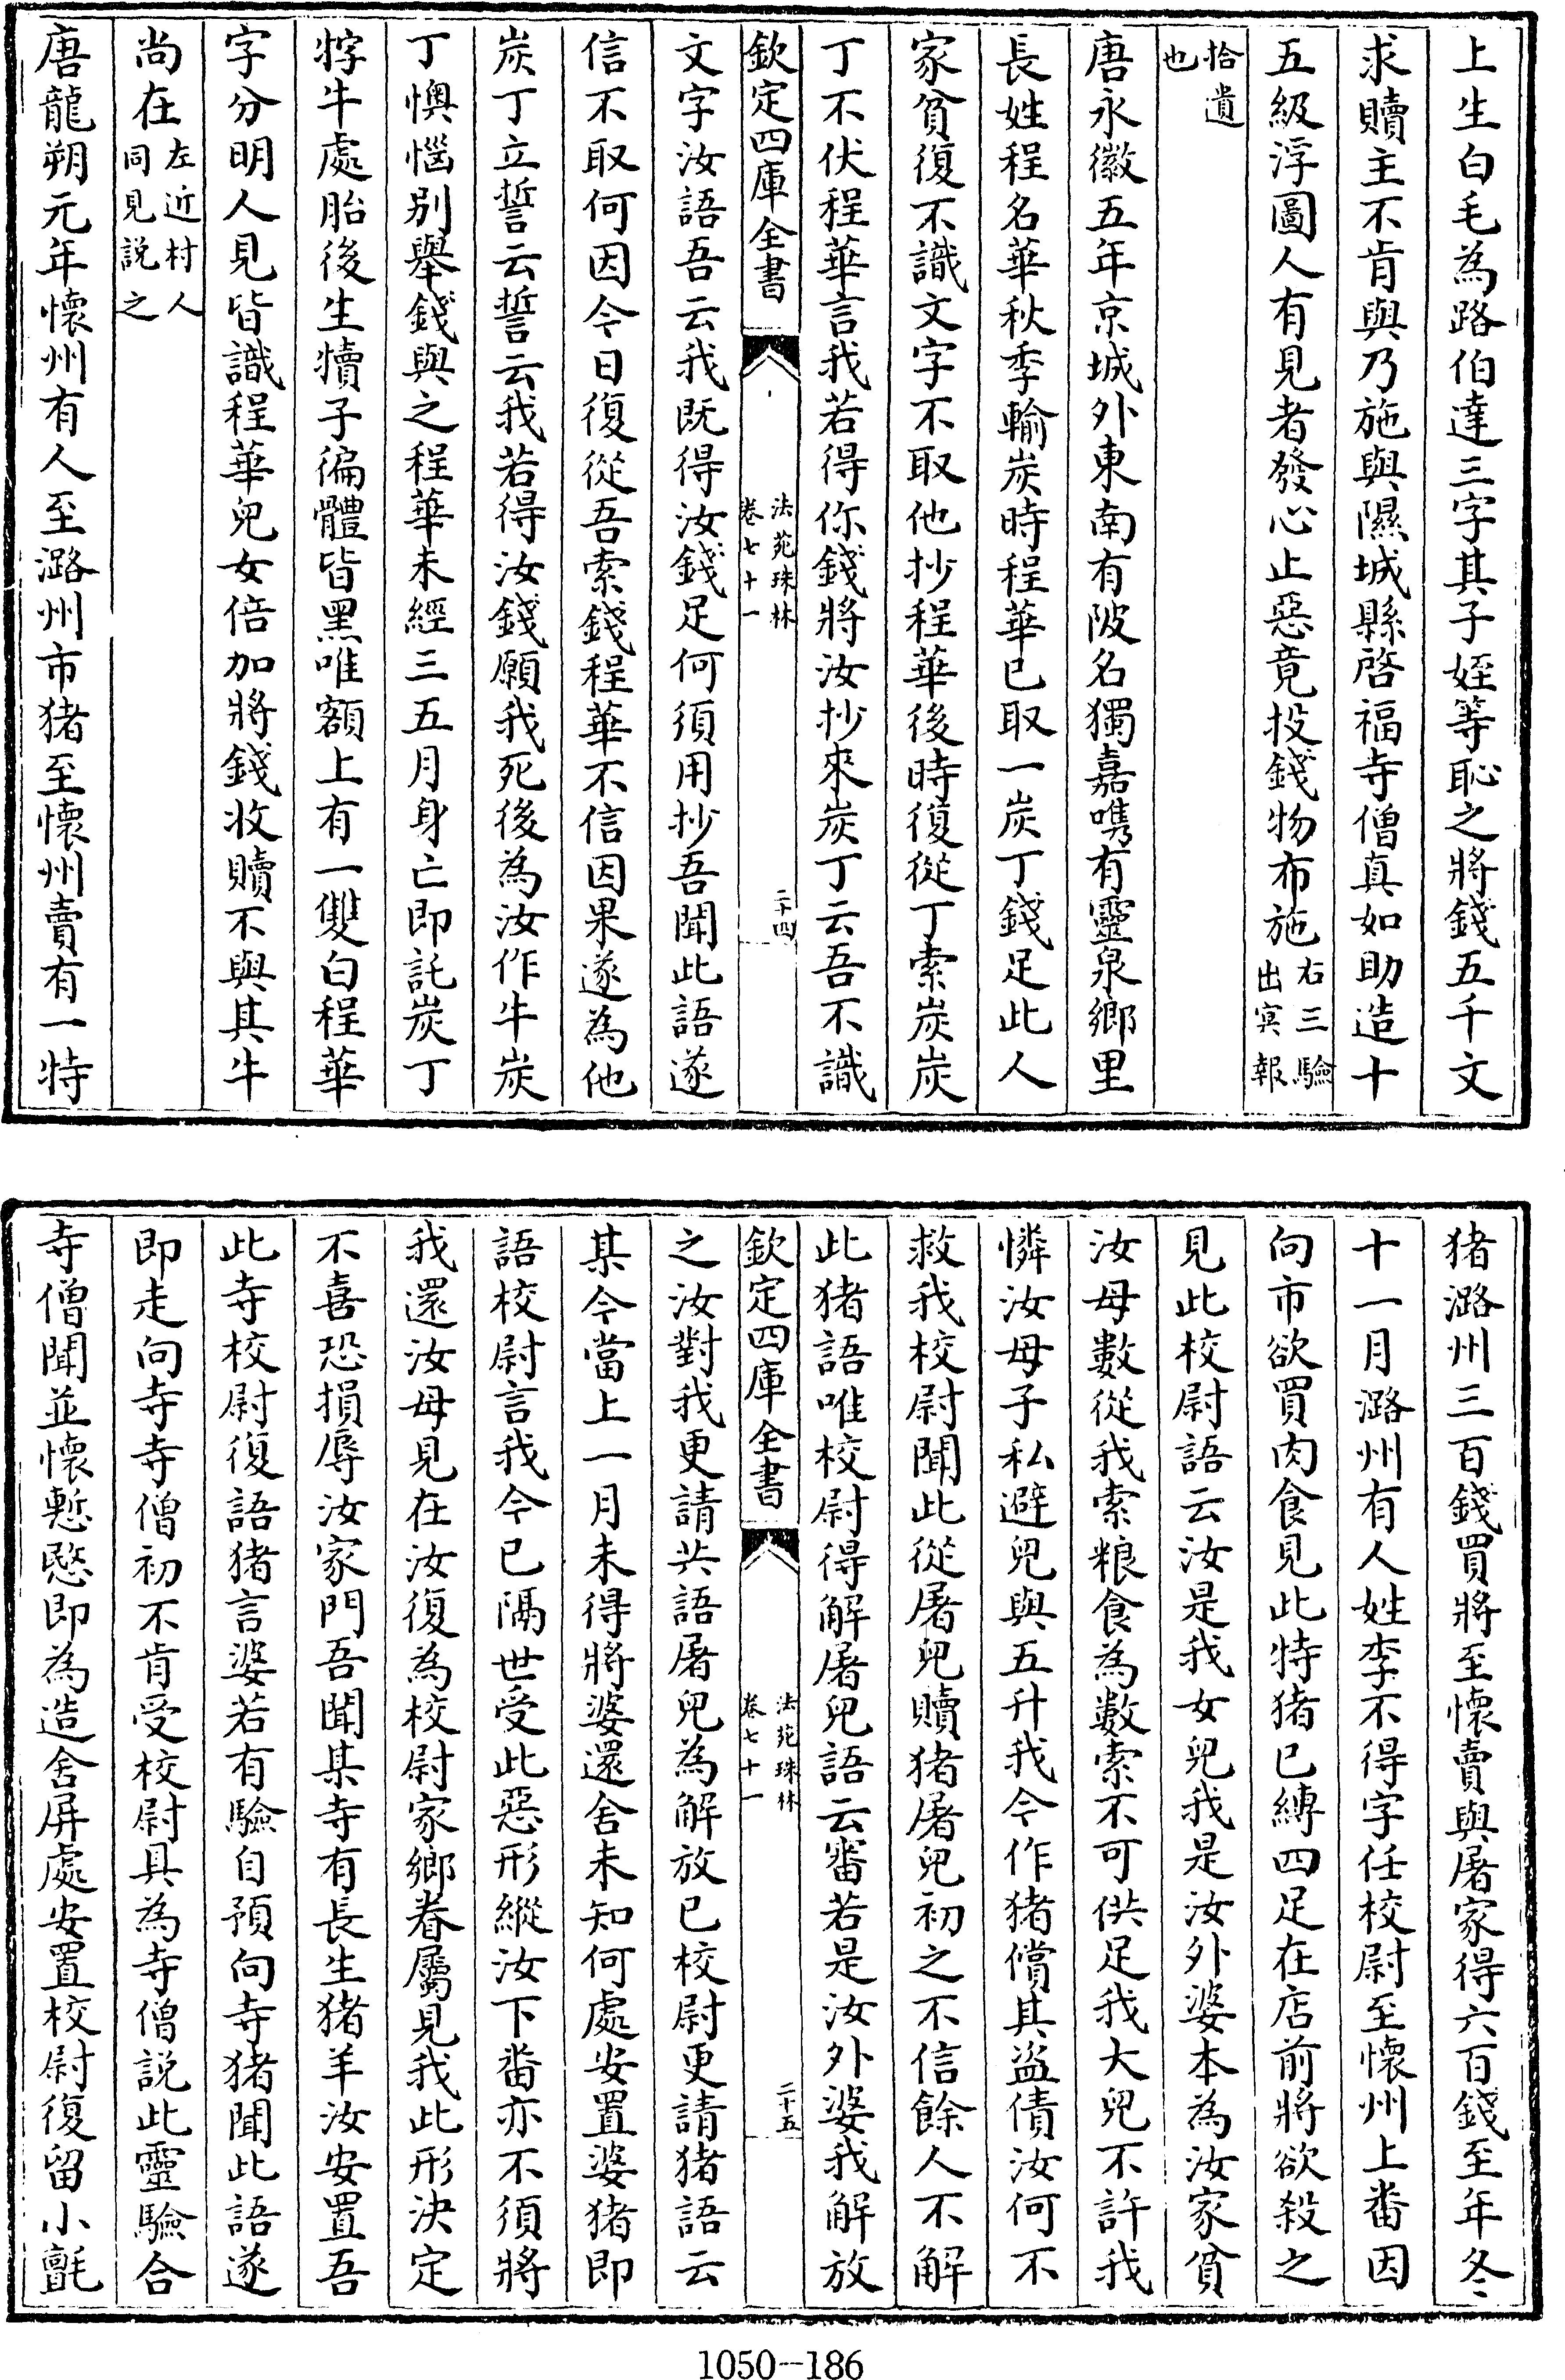 上生白毛為路伯達三字其子姪等恥之將錢五千文
求贖主不肯與乃施與隰城縣啓福寺僧真如助造十
五級浮圖人有見者發心止惡竟投錢物布施右三驗出冥報
拾遺也
唐永徽五年京城外東南有陂名獨嘉㗖有靈泉鄉里
長姓程名華秋季輸炭時程華已取一炭丁錢足此人
家貧復不識文字不取他抄程華後時復從丁索炭炭
丁不伏程華言我若得你錢將汝抄來炭丁云吾不識
欽定四庫全書 法苑珠林卷七十一 二十四
文字汝語吾云我既得汝錢足何須用抄吾聞此語遂
信不取何因今日復從吾索錢程華不信因果遂為他
炭丁立誓云誓云我若得汝錢願我死後為汝作牛炭
丁懊惱別舉錢與之程華未經三五月身亡即託炭丁
牸牛處胎後生犢子徧體皆黑唯額上有一雙白程華
字分明人見皆識程華兒女倍加將錢收贖不與其牛
尚在左近村人同見說之
唐龍朔元年懷州有人至潞州市猪至懷州賣有一特
猪潞州三百錢買將至懷賣與屠家得六百錢至年冬
十一月潞州有人姓李不得字任校尉至懷州上番因
向市欲買肉食見此特猪已縛四足在店前將欲殺之
見此校尉語云汝是我女兒我是汝外婆本為汝家貧
汝母數從我索粮食為數索不可供足我大兒不許我
憐汝母子私避兒與五升我今作猪償其盗債汝何不
救我校尉聞此從屠兒贖猪屠兒初之不信餘人不解
此猪語唯校尉得解屠兒語云審若是汝外婆我解放
欽定四庫全書 法苑珠林卷七十一 二十五
之汝對我更請共語屠兒為解放已校尉更請猪語云
某今當上一月未得將婆還舍未知何處安置婆猪即
語校尉言我今已隔世受此惡形縱汝下番亦不須將
我還汝母見在汝復為校尉家鄉眷屬見我此形決定
不喜恐損辱汝家門吾聞某寺有長生猪羊汝安置吾
此寺校尉復語猪言婆若有驗自預向寺猪聞此語遂
即走向寺寺僧初不肯受校尉具為寺僧說此靈驗合
寺僧聞並懷慙愍即為造舍屏處安置校尉復留小氈
1050—186